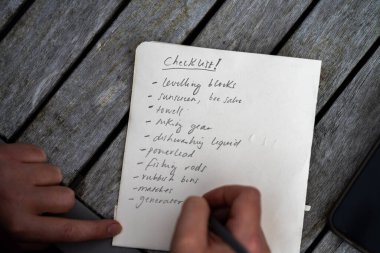 Checklist!
- levelling blocks
- sunscreen, bee salve
- towels
- fishing gear
- dishwashing liquid
- powerlead
- fishing rods
- rubbish bins
- matches
- generator